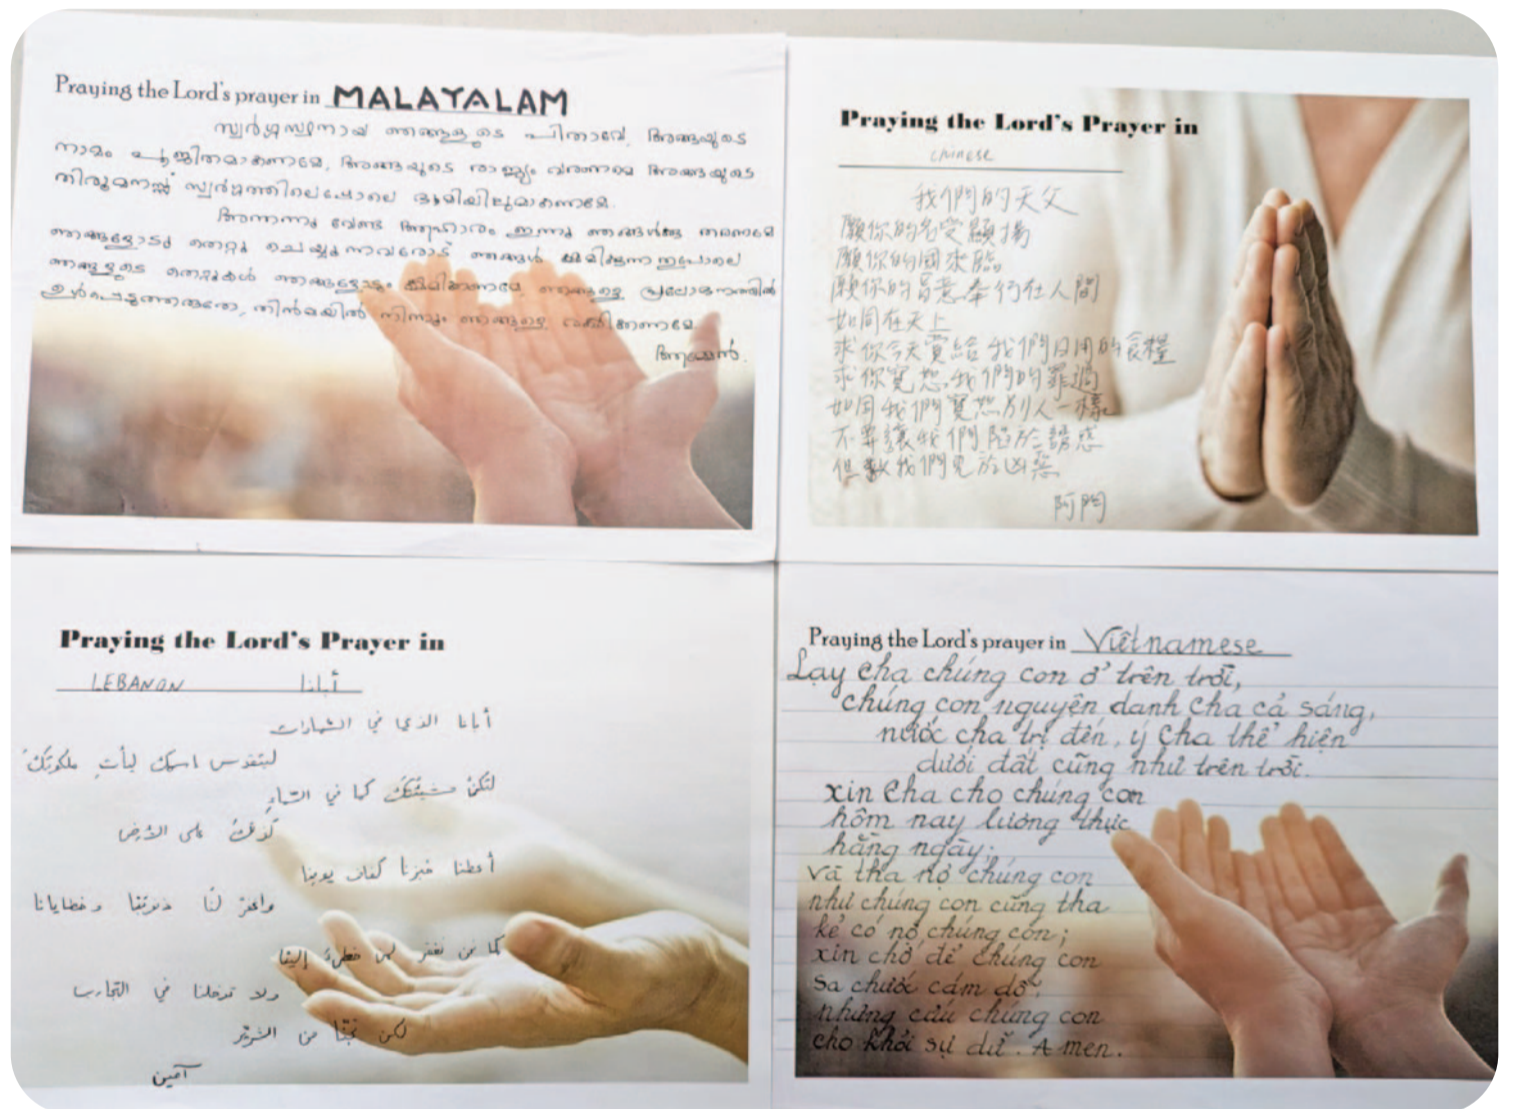 Praying the Lord's prayer in MALAYALAM
സ്വർഗ്ഗസ്ഥനായ ഞങ്ങളുടെ പിതാവേ, അങ്ങയുടെ
നാമം പൂജിതമാകണമേ, അങ്ങയുടെ രാജ്യം വരണമേ അങ്ങയുടെ
തിരുമനസ്സ് സ്വർഗ്ഗത്തിലെപ്പോലെ ഭൂമിയിലുമാകണമേ.
അന്നന്നു വേണ്ട ആഹാരം ഇന്നു ഞങ്ങൾക്കു തരണമേ
ഞങ്ങളോടു തെറ്റു ചെയ്യുന്നവരോട് ഞങ്ങൾ ക്ഷമിക്കുന്നതുപോലെ
ഞങ്ങളുടെ തെറ്റുകൾ ഞങ്ങളോടും ക്ഷമിക്കണമേ, ഞങ്ങളെ പ്രലോഭനത്തിൽ
ഉൾപ്പെടുത്തരുതേ, തിൻമയിൽ നിന്നും ഞങ്ങളെ രക്ഷിക്കണമേ
ആമ്മേൻ.
Praying the Lord's Prayer in
chinese
我們的天父
願你的名受顯揚
願你的國來臨
願你的旨意奉行在人間
如同在天上
求你今天賞給我們日用的食糧
求你寬恕我們的罪過
如同我們寬恕別人一樣
不要讓我們陷於誘惑
但救我們免於凶惡
阿們
Praying the Lord's Prayer in
LEBANON أبانا
أبانا الذي في السماوات
ليتقدس اسمك ليأتِ ملكوتكَ
لتكنْ مشيئتُكَ كما في السماءِ
كذلكَ على الأرض
أعطنا خبزنا كفاف يومنا
واغفر لنَا ذنوبَنا وخطايانا
كما نحن نغفر لمن خطىءَ إلينَا
ولا تدخلنا في التجارب
لكن نجّنَا من الشرّير
آمين
Praying the Lord's prayer in Viêtnamese
Lạy cha chúng con ở trên trời,
chúng con nguyện danh cha cả sáng,
nước cha trị đến, ý cha thể hiện
dưới đất cũng như trên trời.
xin cha cho chúng con
hôm nay lương thực
hằng ngày;
và tha nợ chúng con
như chúng con cũng tha
kẻ có nợ chúng con;
xin chớ để chúng con
sa chước cám dỗ,
nhưng cứu chúng con
cho khỏi sự dữ. Amen.